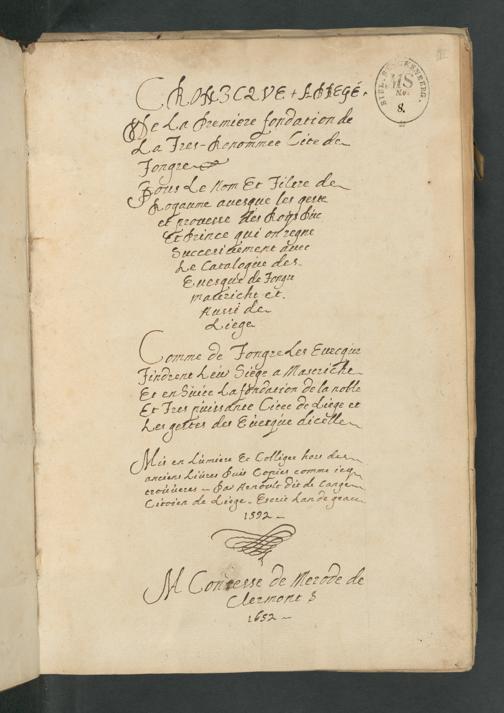 CRONICQVE + ABREGÉ.
De La Premiere fondation de
La Tres-Renommee Cite de
Tongre
Sous Le Nom Et Tiltre de
Royaume avesque les geste
et prouesse des Roys Duc
Et Prince qui on regne
Successivement avec
Le Catalogue des
Evesque de Tongre
mastricht et.
Aussi de
Liege
Comme de Tongre Les Evecque
Tindrent Leur Siege a Mastricht
Et en Suitte La fondation de la noble
Et Tres puissante Citee de Liege et
Les gestes des Evesque dicelle
Mis en Lumiere Et Colliger hors des
anciens Livres Puis Copies comme
Par Renoult dit de
Citoien de Liege. Escrit Lan de grace
1592
M Contesse de Merode de
Clermont S
1652
BIBL. STARKENBERG.
MS
No.
8.